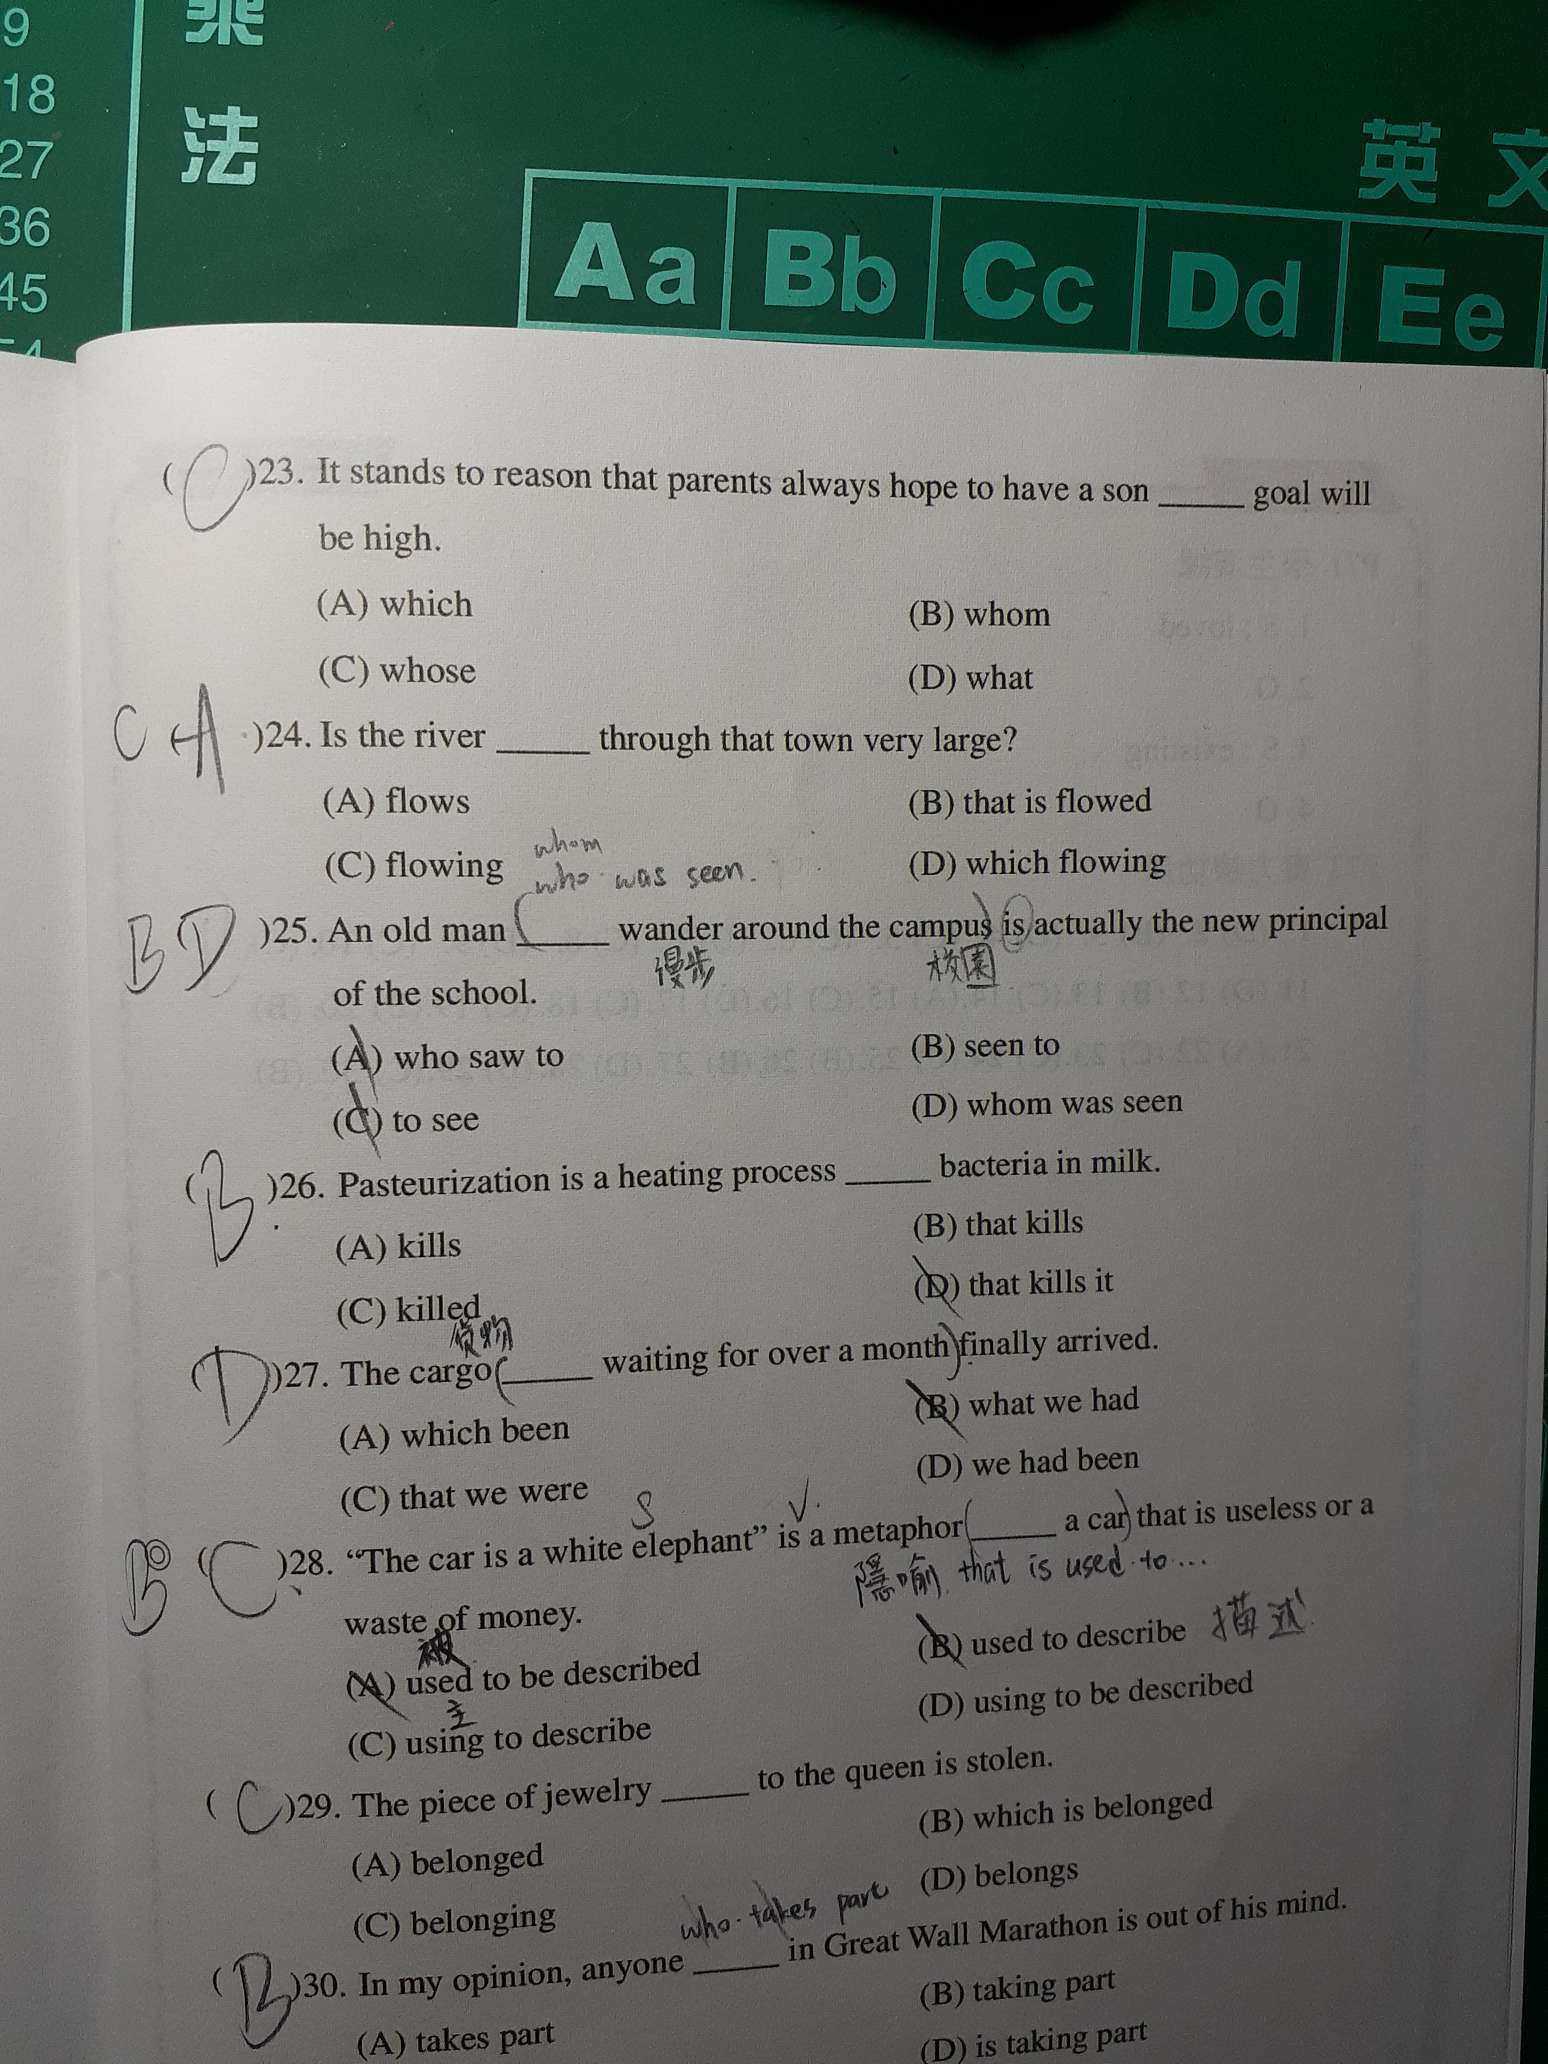 9
18
27
36
45
乘
法
英文
Aa Bb Cc Dd Ee
(C)23. It stands to reason that parents always hope to have a son _____ goal will
be high.
(A) which (B) whom
(C) whose (D) what
C A )24. Is the river _____ through that town very large?
(A) flows (B) that is flowed
(C) flowing (D) which flowing
whom
who was seen.
B D )25. An old man _____ wander around the campus is actually the new principal
漫步 校園
of the school.
(A) who saw to (B) seen to
(C) to see (D) whom was seen
(B)26. Pasteurization is a heating process _____ bacteria in milk.
(A) kills (B) that kills
(C) killed (D) that kills it
貨物
(D)27. The cargo(_____ waiting for over a month)finally arrived.
(A) which been (B) what we had
(C) that we were (D) we had been
S V.
B (C)28. “The car is a white elephant” is a metaphor(_____ a car)that is useless or a
隱喻 that is used to...
waste of money.
被
(A) used to be described (B) used to describe 描述
主
(C) using to describe (D) using to be described
(C)29. The piece of jewelry _____ to the queen is stolen.
(A) belonged (B) which is belonged
(C) belonging (D) belongs
who takes part
(B)30. In my opinion, anyone _____ in Great Wall Marathon is out of his mind.
(A) takes part (B) taking part
(D) is taking part